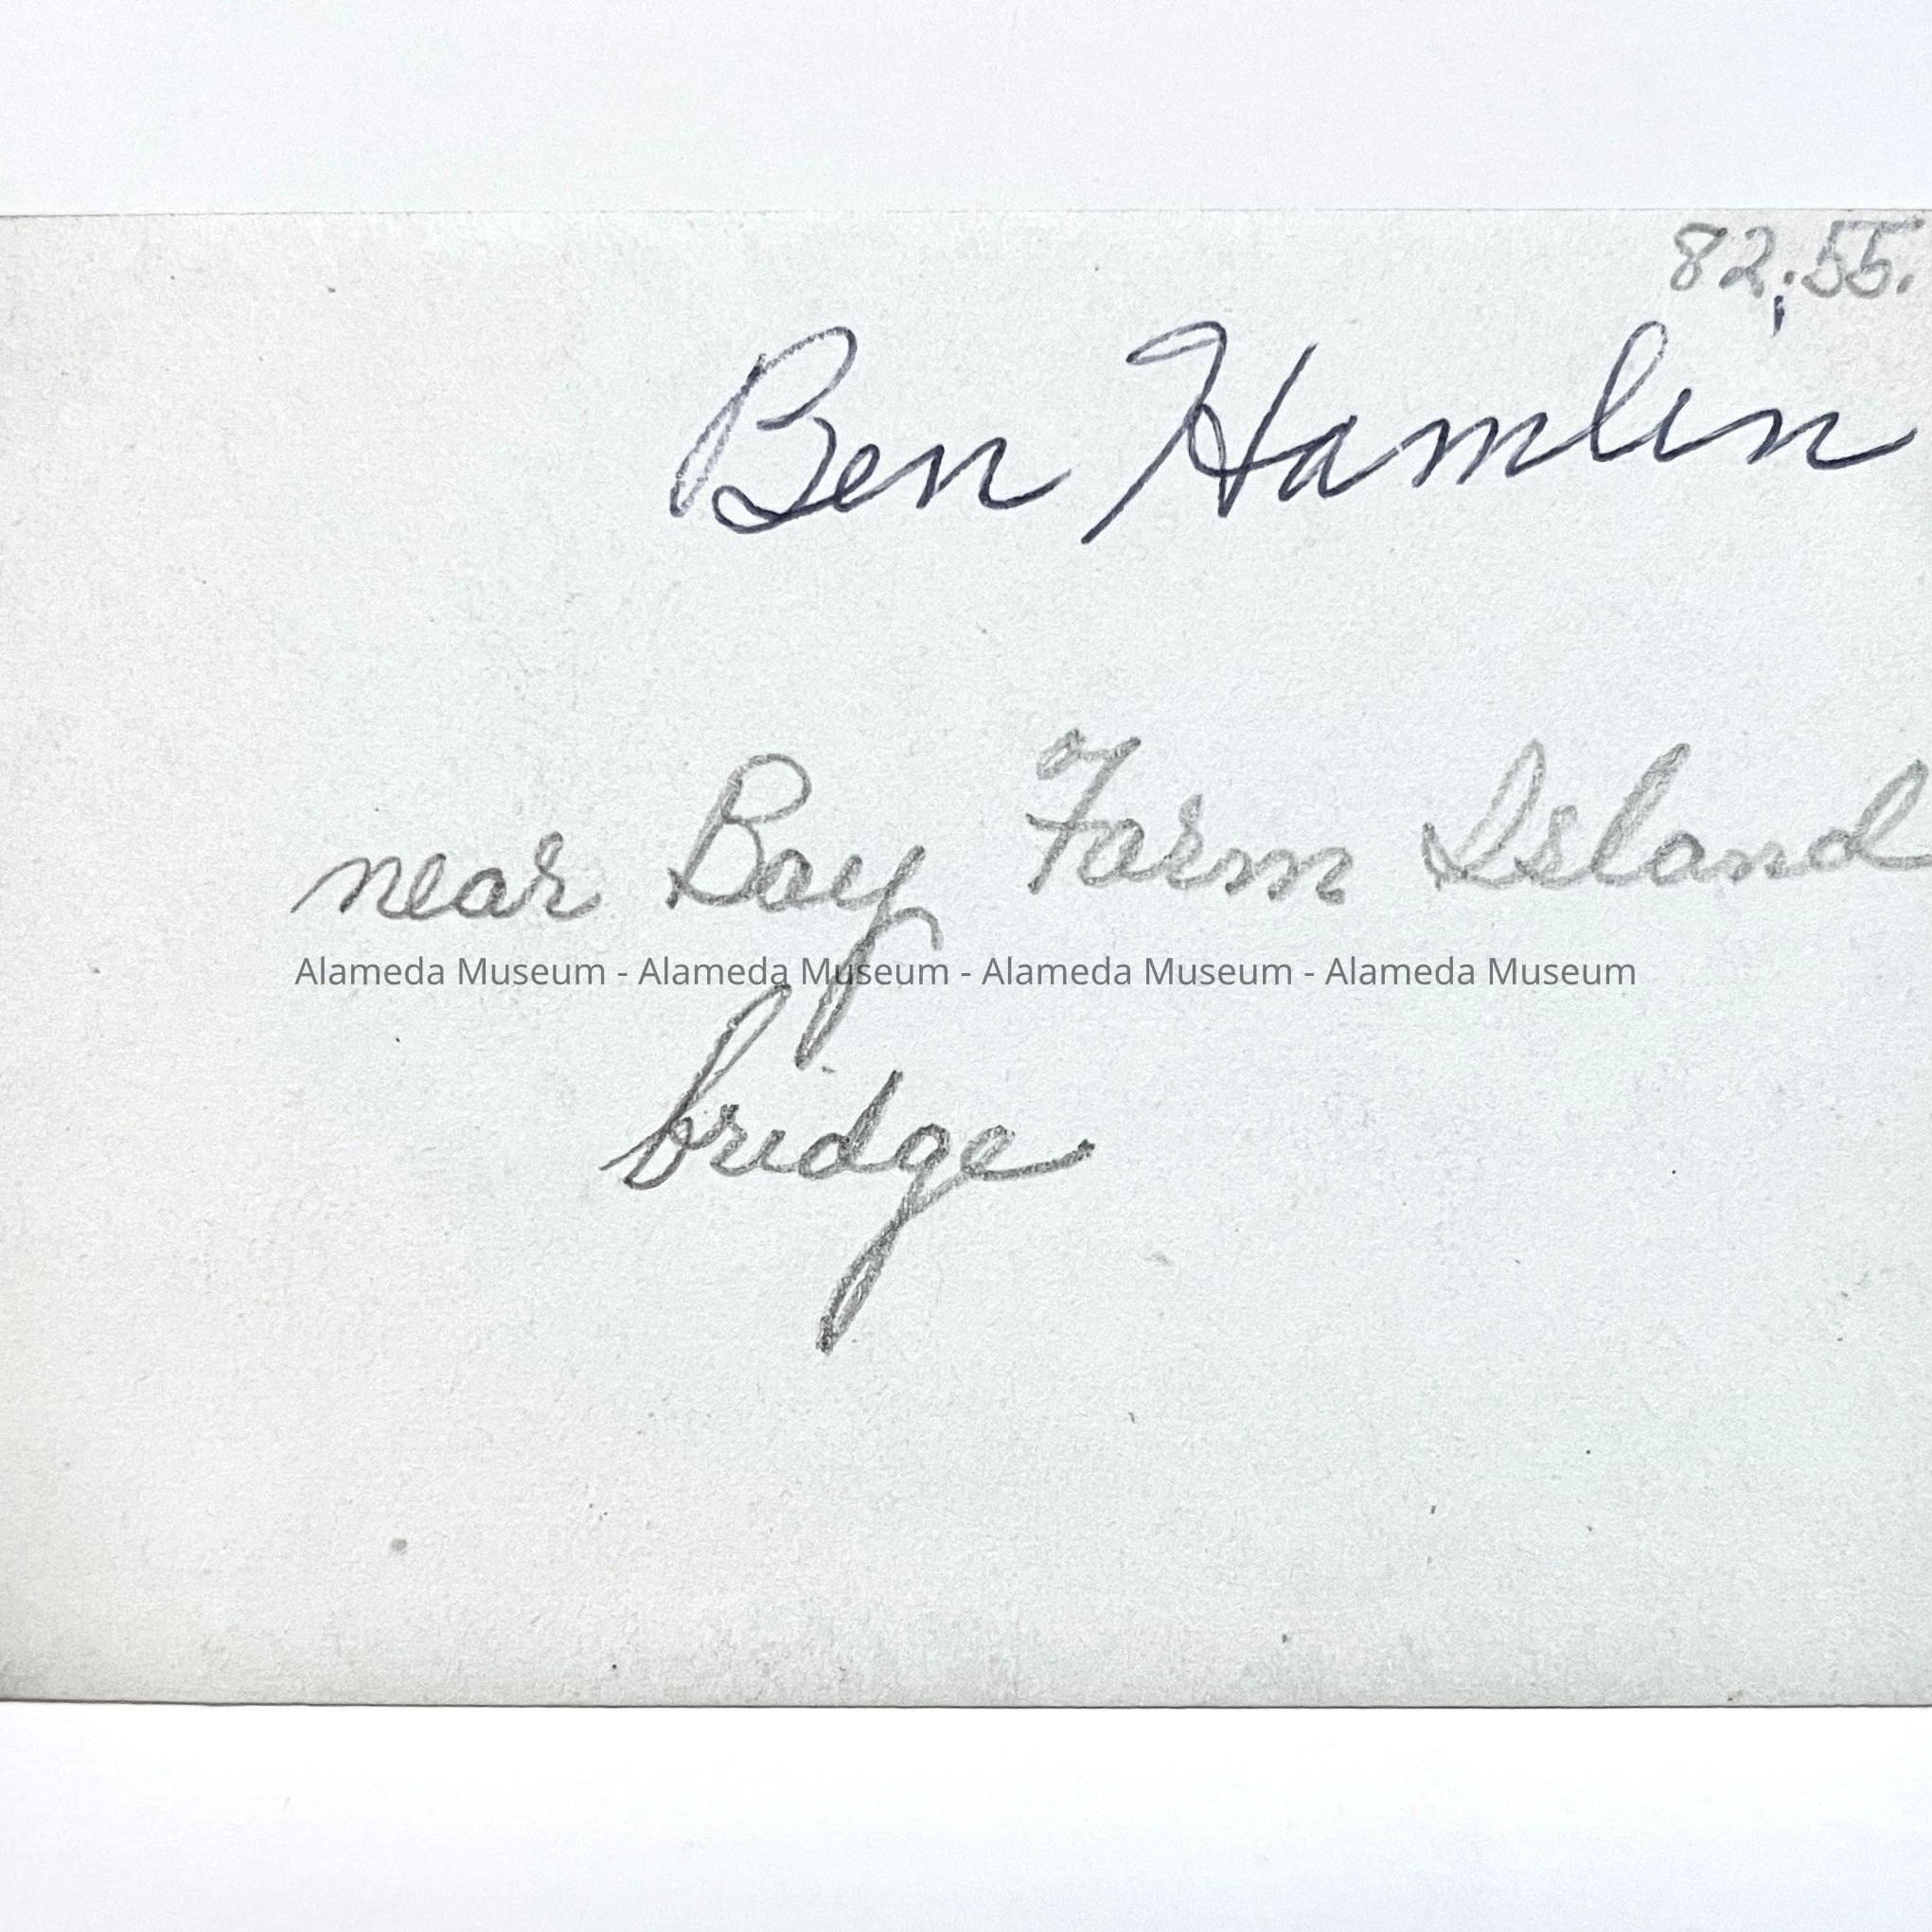 82.55.
Ben Hamlin
near Bay Farm Island
Alameda Museum - Alameda Museum - Alameda Museum - Alameda Museum
bridge